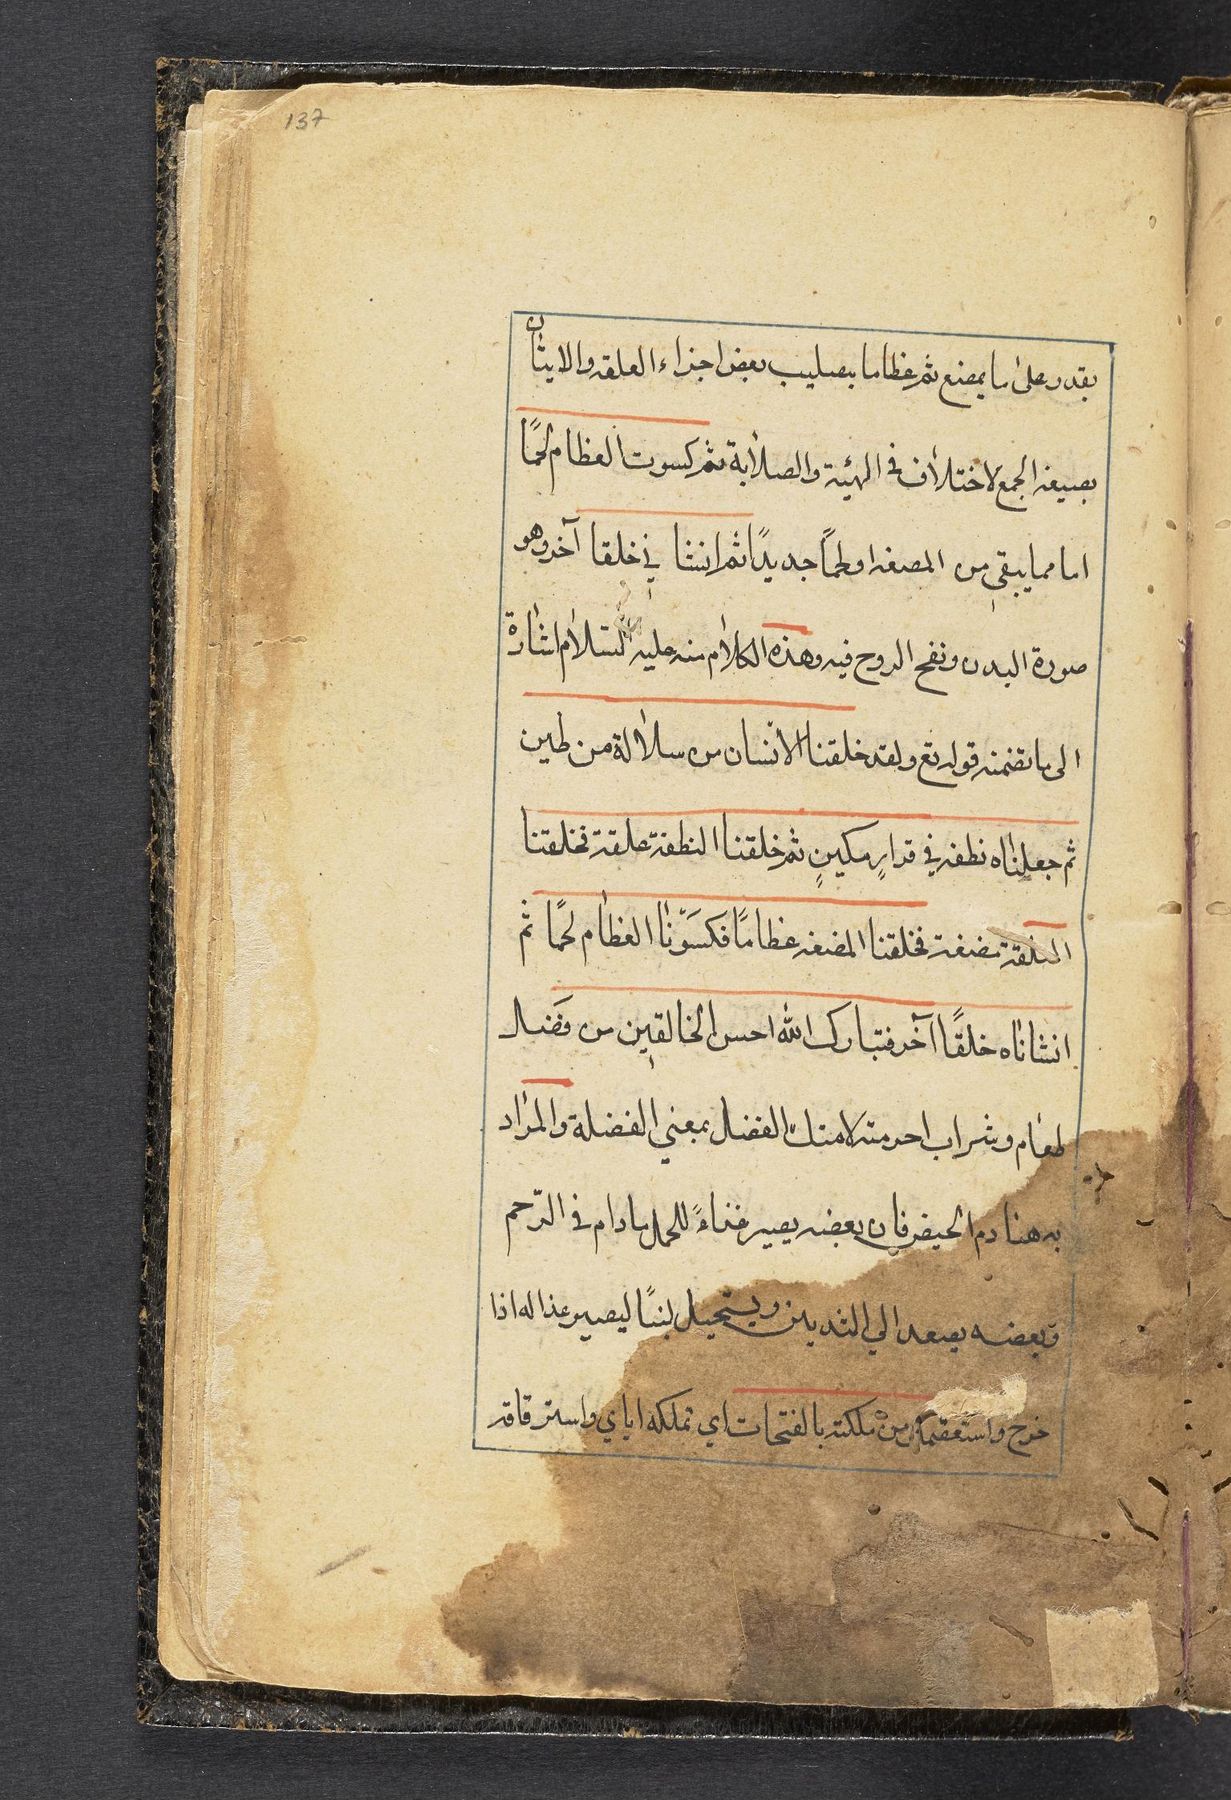 137
يقدر على ما يمضغ ثم عظاما بصليب بعض اجزاء العلقه والايتان
بصيغه الجمع لاختلاف في الهيئة والصلابة ثم كسوت العظام لحمًا
اما مما يبقي من المضغه او لحمًا جديدًا ثم انشا ني خلقا آخر وهو
صورة البدن ونفخ الروح فيه وهذه الكلام منه عليه السّلام اشارة
الى ما تضمنه قوله تع ولقد خلقنا الانسان من سلالة من طين
ثم جعلناه نطفه في قرارٍ مكينٍ ثم خلقنا النطفة علقة فخلقنا
العلقة مضغة فخلقنا المضغه عظامًا فكسَوْنا العظام لحمًا ثم
انشاناه خلقًا آخر فتبارك الله احسن الخالقين من فَضل
طعام وشراب اجر منه لامتك الفضل بمعني الفضلة والمراد
به هنا دم الحيض فان بعضه يصير غذاءً للحمل ما دام في الرّحم
وبعضه يصعد الي الثديين ويستحيل لبنًا ليصير غذا له اذا
خرج من ملكته بالفتحات اي تملكه اياي واسترقاقه